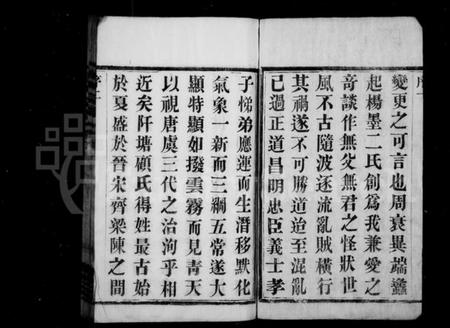 變更之可言也周衰異端蠭
起楊墨二氏創為我兼愛之
奇談作無父無君之怪狀世
風不古隨波逐流亂賊橫行
其禍遂不可勝道迨至混亂
已過正道昌明忠臣義士孝
子悌弟應運而生潛移默化
氣象一新而三綱五常遂大
顯特顯如撥雲霧而見青天
以視唐虞三代之治洵乎相
近矣阡塘顧氏得姓最古始
於夏盛於晉宋齊梁陳之間